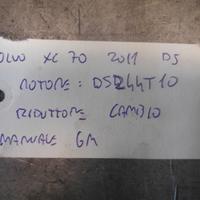 OLVO XC 70 2011 D5
MOTORE: D5244T10
RIDUTTORE CAMBIO
MANUALE 6M